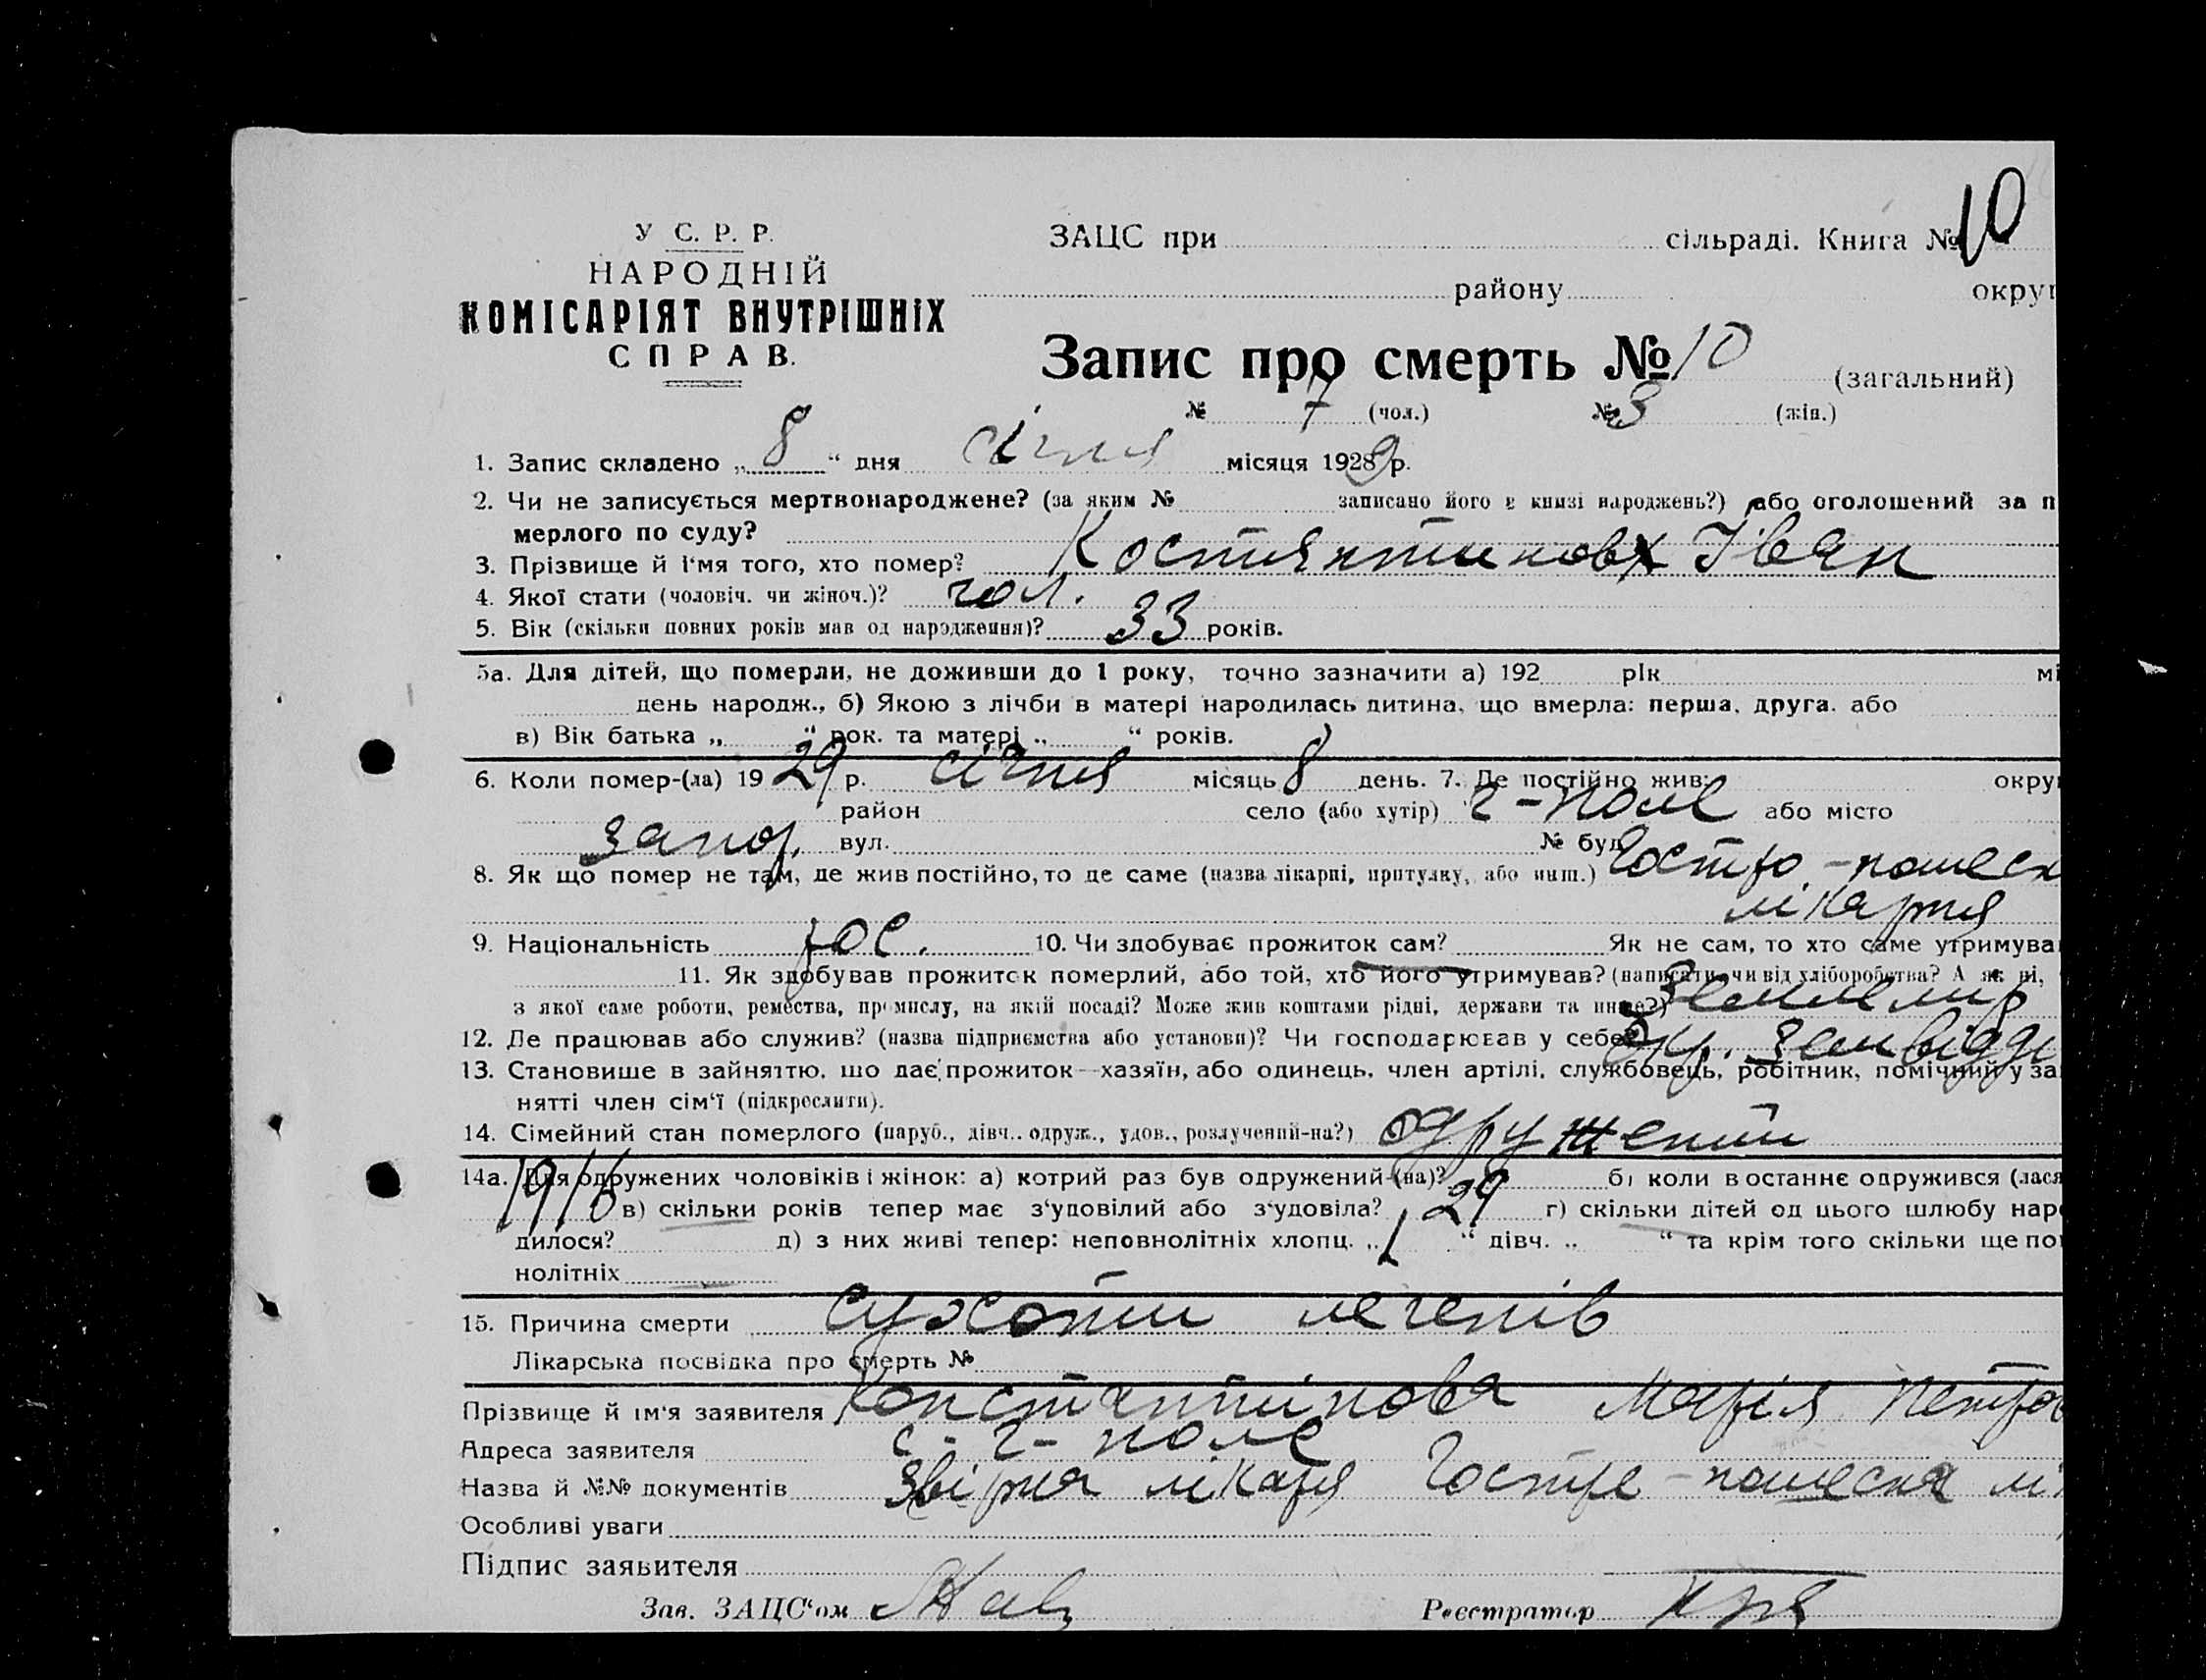 У С. Р. Р.
НАРОДНІЙ
КОМІСАРІЯТ ВНУТРІШНІХ
СПРАВ.
ЗАЦС при сільраді. Книга № 10
району округ
Запис про смерть № 10 (загальний)
№ 7 (чол.) № 3 (жін.)
1. Запис складено „ 8 “ дня січня місяця 1929 р.
2. Чи не записується мертвонароджене? (за яким № записано його в книзі народжень?) або оголошений за п
мерлого по суду?
3. Прізвище й і‘мя того, хто помер? Костянтинов Іван
4. Якої стати (чоловіч. чи жіноч.)? чол.
5. Вік (скільки повних років мав од народження)? 33 років.
5а. Для дітей, що померли, не доживши до 1 року, точно зазначити а) 192 рік мі
день народж., б) Якою з лічби в матері народилась дитина, що вмерла: перша, друга. або
в) Вік батька „ “ рок. та матері „ “ років.
6. Коли помер-(ла) 19 29 р. січня місяць 8 день. 7. Де постійно жив: окру
район село (або хутір) г-поле або місто
запор. вул. № буд
8. Як що помер не там, де жив постійно, то де саме (назва лікарні, притулку, або инш.) Гостро-пошесн
лікарня
9. Національність рос. 10. Чи здобуває прожиток сам? Як не сам, то хто саме утримува
11. Як здобував прожиток померлий, або той, хто його утримував? (написати, чи від хліборобства? А як ні,
з якої саме роботи, ремества, промислу, на якій посаді? Може жив коштами рідні, держави та инше?) Землемір
12. Де працював або служив? (назва підприємства або установи)? Чи господарював у себе? Окр. земвідді
13. Становище в зайняттю, що дає прожиток—хазяїн, або одинець, член артілі, службовець, робітник, помічний у за
нятті член сім‘ї (підкреслити).
14. Сімейний стан померлого (паруб., дівч., одруж., удов., розлучений-на?) одружений
14а. Для одружених чоловіків і жінок: а) котрий раз був одружений-(на)? б) коли в останнє одружився (лася
1916 в) скільки років тепер має з‘удовілий або з‘удовіла? 29 г) скільки дітей од цього шлюбу наро
дилося? д) з них живі тепер: неповнолітніх хлопц. „ 1 “ дівч. „ “ та крім того скільки ще пов
нолітніх
15. Причина смерти сухоти легенів
Лікарська посвідка про смерть №
Прізвище й ім‘я заявителя Константінова Марія Петров
Адреса заявителя с-г-поле
Назва й №№ документів лікаря Гостре-пошесна лі
Особливі уваги
Підпис заявителя
Зав. ЗАЦС‘ом Реєстратор